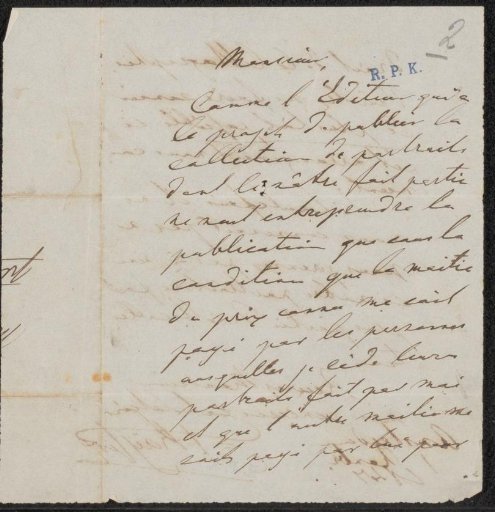 2
Monsieur,
R. P. K.
Comme l'Editeur qui a
le projet de publier la
collection de portraits
dont le vôtre fait partie
ne veut entreprendre la
publication que sous la
condition que la moitié
du prix convenu me soit
payé par les personnes
auxquelles je cède leurs
portraits fait par moi
et que l'autre moitié me
soit payé par